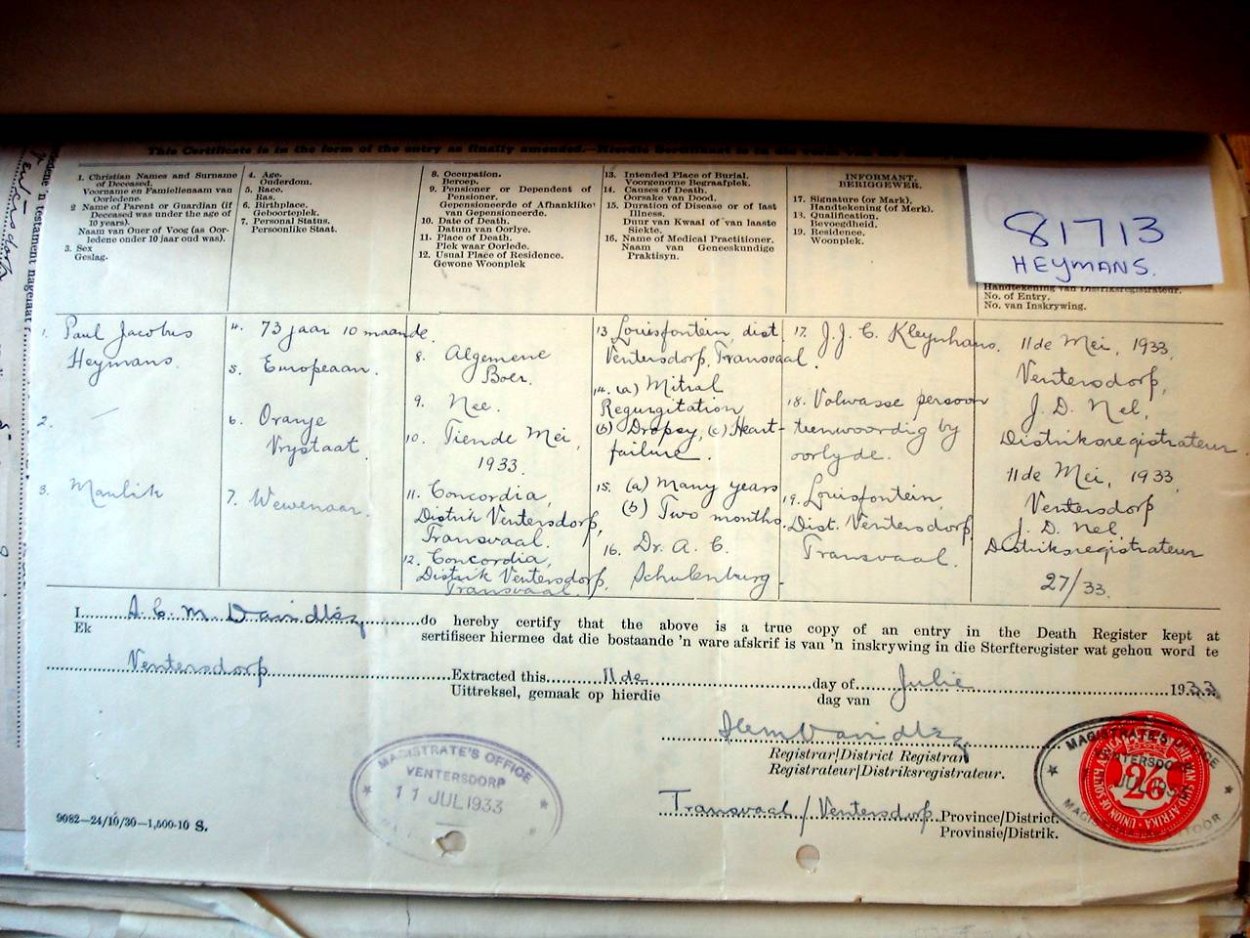 This Certificate is in the form of the entry as finally amended.
1. Christian Names and Surname
of Deceased.
Voorname en Familienaam van
Oorledene.
2 Name of Parent or Guardian (if
Deceased was under the age of
10 years).
Naam van Ouer of Voog (as Oor-
ledene onder 10 jaar oud was).
3. Sex
Geslag.
4. Age.
Ouderdom.
5. Race.
Ras.
6. Birthplace.
Geboorteplek.
7. Personal Status.
Persoonlike Staat.
8. Occupation.
Beroep.
9. Pensioner or Dependent of
Pensioner.
Gepensioneerde of Afhanklike
van Gepensioneerde.
10. Date of Death.
Datum van Oorlye.
11. Place of Death.
Plek waar Oorlede.
12. Usual Place of Residence.
Gewone Woonplek
13. Intended Place of Burial.
Voorgenome Begraafplek.
14. Causes of Death.
Oorsake van Dood.
15. Duration of Disease or of last
Illness.
Duur van Kwaal of van laaste
Siekte.
16. Name of Medical Practitioner.
Naam van Geneeskundige
Praktisyn.
INFORMANT.
BERIGGEWER.
17. Signature (or Mark).
Handtekening (of Merk).
18. Qualification.
Bevoegdheid.
19. Residence.
Woonplek.
81713
HEYMANS.
Handtekening van Distriksregistrateur.
No. of Entry.
No. van Inskrywing.
1. Paul Jacobus
Heymans.
2.
3. Manlik
4. 73 jaar 10 maande.
5. Europeaan.
6. Oranje
Vrystaat.
7. Wewenaar.
8. Algemene
Boer.
9. Nee.
10. Tiende Mei,
1933.
11. Concordia,
Distrik Ventersdorp,
Transvaal.
12. Concordia,
Distrik Ventersdorp.
Transvaal.
13 Louisfontein, dist
Ventersdorp, Transvaal.
14. (a) Mitral
Regurgitation
(b) Dropsy, (c) Heart-
failure.
15. (a) Many years
(b) Two months.
16. Dr. A. C.
Schulenburg.
17. J. J. C. Kleynhans.
18. Volwasse persoon
teenwoordig by
oorlyde.
19. Louisfontein,
Dist. Ventersdorp,
Transvaal.
11de Mei, 1933,
Ventersdorp,
J. D. Nel,
Distriksregistrateur.
11de Mei, 1933,
Ventersdorp
J. D. Nel,
Distriksregistrateur
27/33.
I
Ek
do hereby certify that the above is a true copy of an entry in the Death Register kept at
sertifiseer hiermee dat die bostaande 'n ware afskrif is van 'n inskrywing in die Sterfteregister wat gehou word te
Ventersdorp Extracted this 11de day of Julie 1933
Uittreksel, gemaak op hierdie dag van
Registrar/District Registrar
Registrateur/Distriksregistrateur.
MAGISTRATE'S OFFICE
VENTERSDORP
11 JUL 1933
Transvaal/Ventersdorp Province/District.
Provinsie/Distrik.
9082—24/10/30—1,500-10 S.
MAGISTRATE'S OFFICE
VENTERSDORP
JUL 1933
2/6